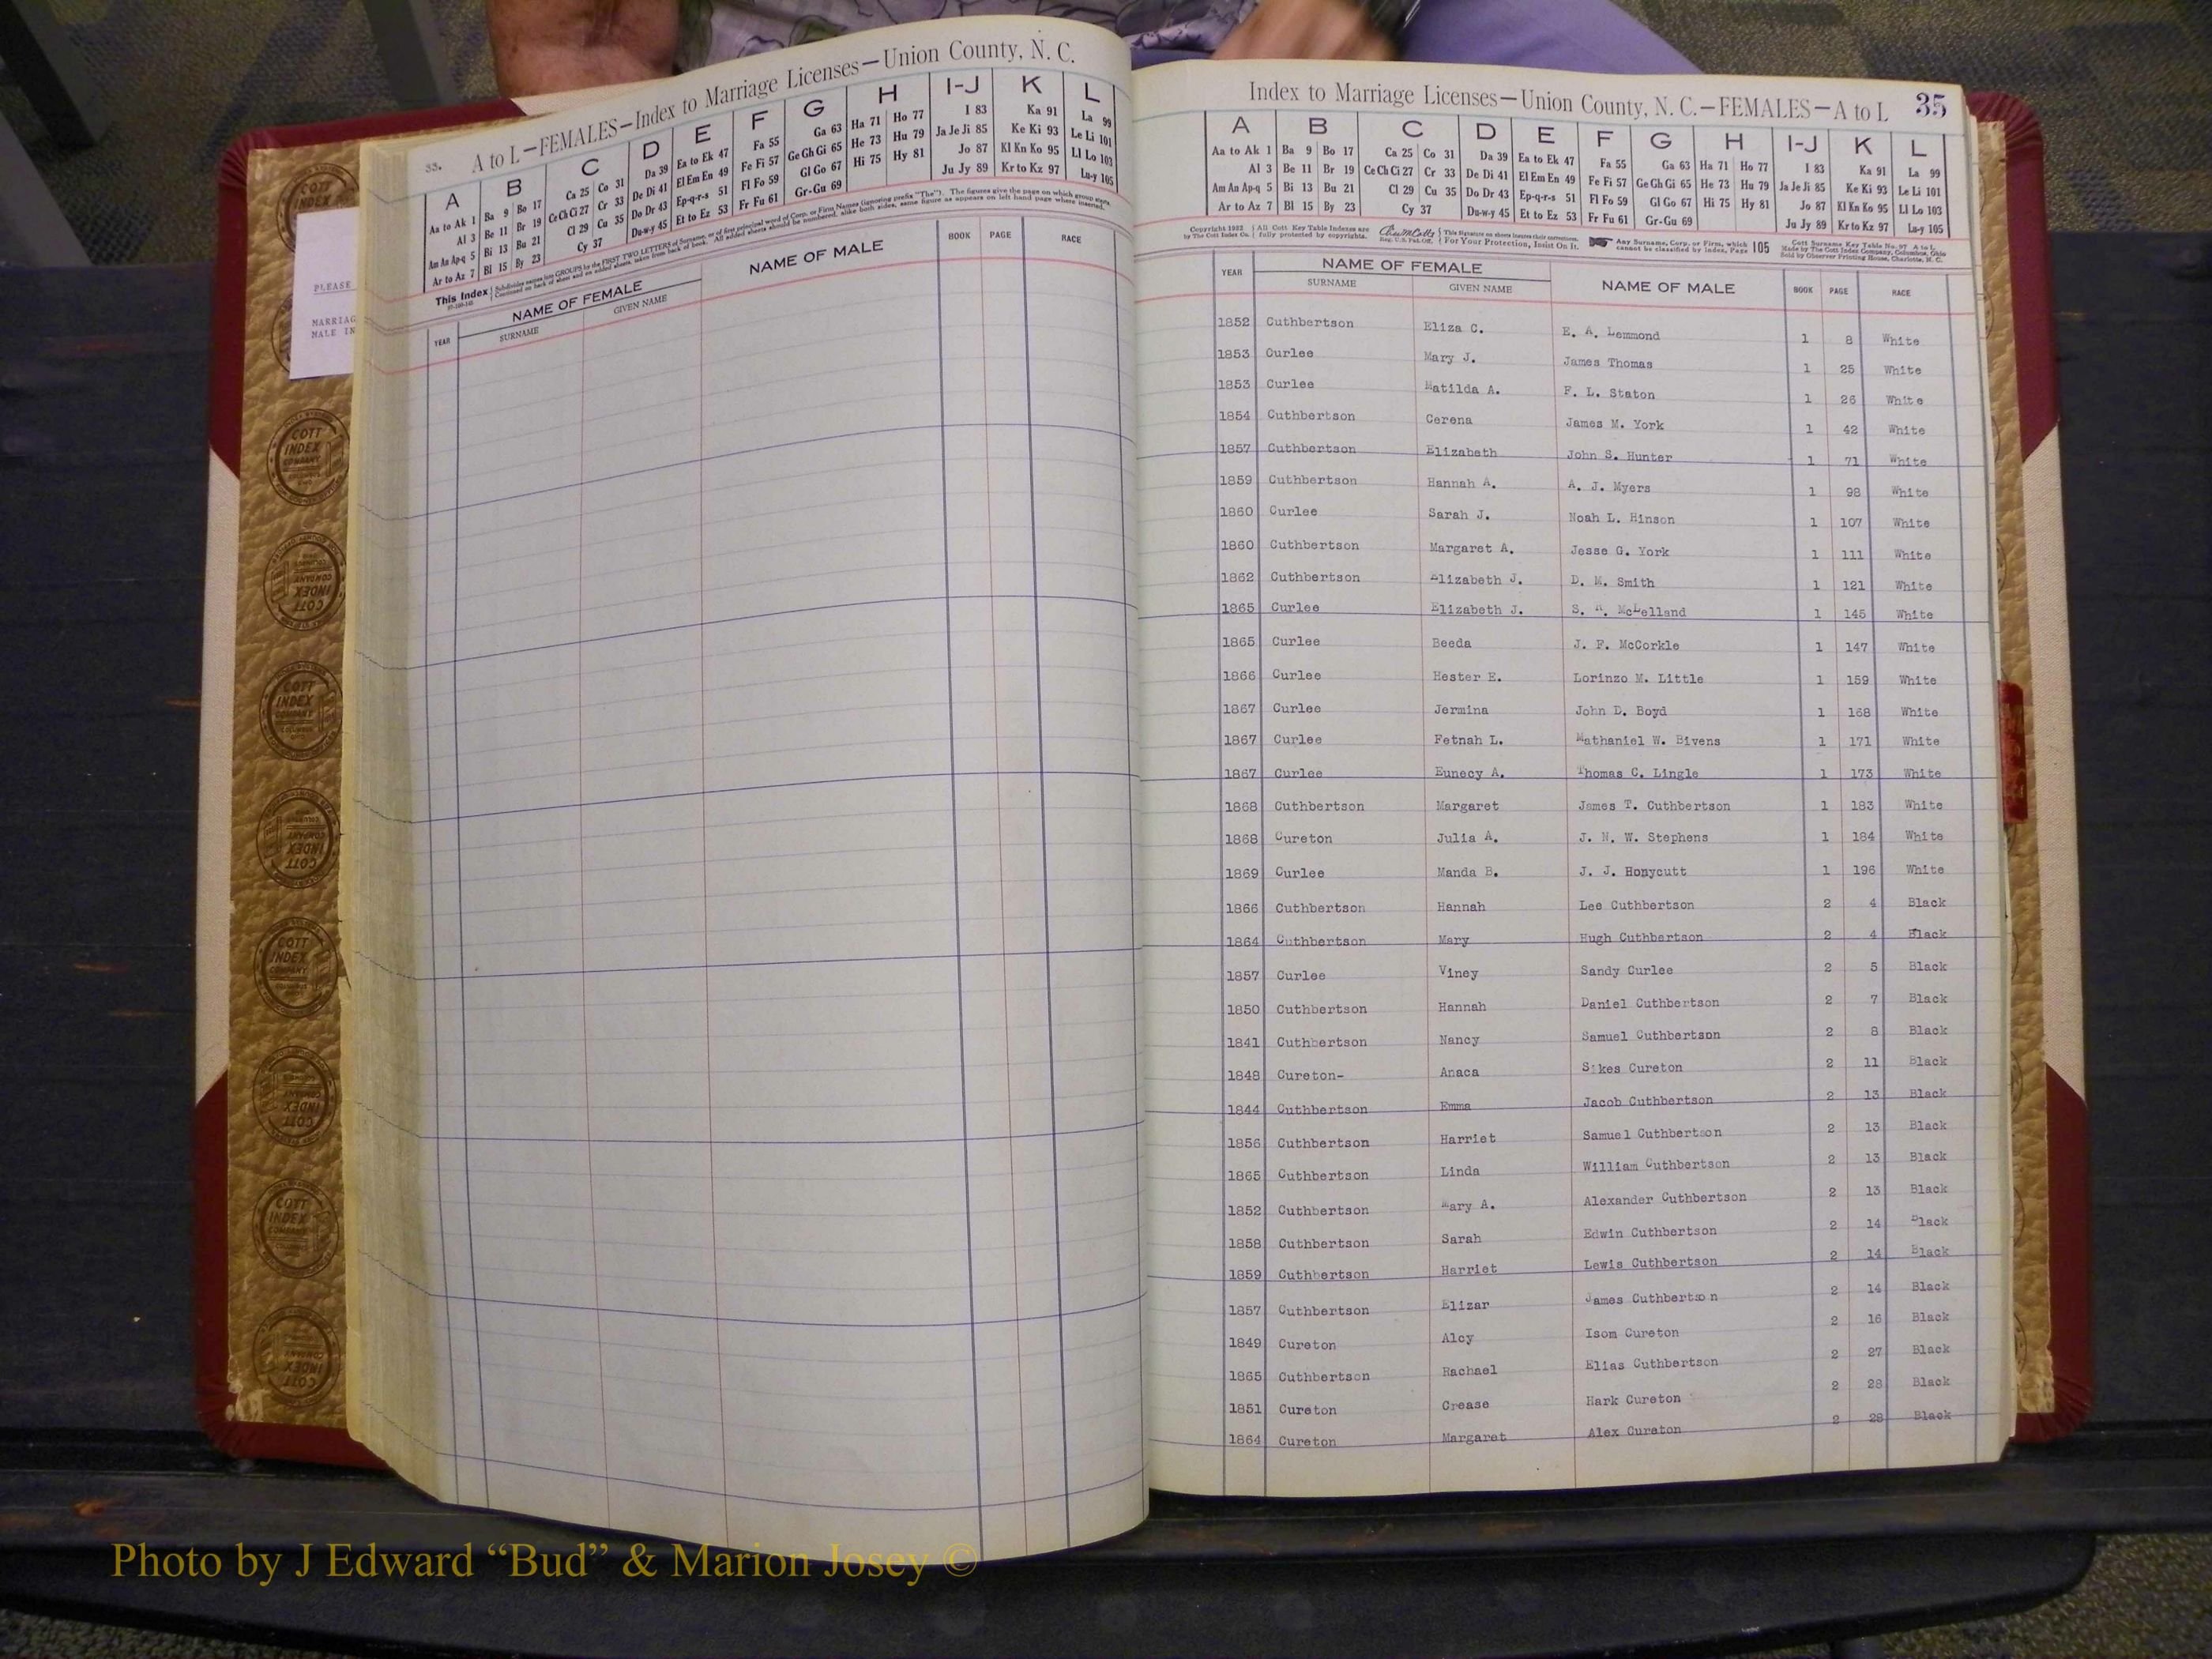 33. A to L—FEMALES—Index to Marriage Licenses—Union County, N. C.
A B C D E F G H I-J K L
Aa to Ak 1 Ba 9 Bo 17 Ca 25 Co 31 Da 39 Ea to Ek 47 Fa 55 Ga 63 Ha 71 Ho 77 I 83 Ka 91 La 99
Al 3 Be 11 Br 19 Ce Ch Ci 27 Cr 33 De Di 41 El Em En 49 Fe Fi 57 Ge Gh Gi 65 He 73 Hu 79 Ja Je Ji 85 Ke Ki 93 Le Li 101
Am An Ap-q 5 Bi 13 Bu 21 Cl 29 Cu 35 Do Dr 43 Ep-q-r-s 51 Fl Fo 59 Gl Go 67 Hi 75 Hy 81 Jo 87 Kl Kn Ko 95 Ll Lo 103
Ar to Az 7 Bl 15 By 23 Cy 37 Du-w-y 45 Et to Ez 53 Fr Fu 61 Gr-Gu 69 Ju Jy 89 Kr to Kz 97 Lu-y 105
This Index
YEAR NAME OF FEMALE NAME OF MALE BOOK PAGE RACE
SURNAME GIVEN NAME
PLEASE
MARRIAG
MALE IN
COTT INDEX COMPANY
Index to Marriage Licenses—Union County, N. C.—FEMALES—A to L 35
A B C D E F G H I-J K L
Aa to Ak 1 Ba 9 Bo 17 Ca 25 Co 31 Da 39 Ea to Ek 47 Fa 55 Ga 63 Ha 71 Ho 77 I 83 Ka 91 La 99
Al 3 Be 11 Br 19 Ce Ch Ci 27 Cr 33 De Di 41 El Em En 49 Fe Fi 57 Ge Gh Gi 65 He 73 Hu 79 Ja Je Ji 85 Ke Ki 93 Le Li 101
Am An Ap-q 5 Bi 13 Bu 21 Cl 29 Cu 35 Do Dr 43 Ep-q-r-s 51 Fl Fo 59 Gl Go 67 Hi 75 Hy 81 Jo 87 Kl Kn Ko 95 Ll Lo 103
Ar to Az 7 Bl 15 By 23 Cy 37 Du-w-y 45 Et to Ez 53 Fr Fu 61 Gr-Gu 69 Ju Jy 89 Kr to Kz 97 Lu-y 105
All Cott Key Table Indexes are fully protected by copyrights. For Your Protection, Insist On It. Any Surname, Corp. or Firm, which cannot be classified by Index, Page 105
YEAR NAME OF FEMALE NAME OF MALE BOOK PAGE RACE
SURNAME GIVEN NAME
1852 Cuthbertson Eliza C. E. A. Lemmond 1 8 White
1853 Curlee Mary J. James Thomas 1 25 White
1853 Curlee Matilda A. F. L. Staton 1 26 White
1854 Cuthbertson Cerena James M. York 1 42 White
1857 Cuthbertson Elizabeth John S. Hunter 1 71 White
1859 Cuthbertson Hannah A. A. J. Myers 1 98 White
1860 Curlee Sarah J. Noah L. Hinson 1 107 White
1860 Cuthbertson Margaret A. Jesse G. York 1 111 White
1862 Cuthbertson Elizabeth J. D. M. Smith 1 121 White
1865 Curlee Elizabeth J. S. McLelland 1 145 White
1865 Curlee Beeda J. F. McCorkle 1 147 White
1866 Curlee Hester E. Lorinzo M. Little 1 159 White
1867 Curlee Jermina John D. Boyd 1 168 White
1867 Curlee Fetnah L. Mathaniel W. Bivens 1 171 White
1867 Curlee Eunecy A. Thomas C. Lingle 1 173 White
1868 Cuthbertson Margaret James T. Cuthbertson 1 183 White
1868 Cureton Julia A. J. N. W. Stephens 1 184 White
1869 Curlee Manda B. J. J. Honycutt 1 196 White
1866 Cuthbertson Hannah Lee Cuthbertson 2 4 Black
1864 Cuthbertson Mary Hugh Cuthbertson 2 4 Black
1857 Curlee Viney Sandy Curlee 2 5 Black
1850 Cuthbertson Hannah Daniel Cuthbertson 2 7 Black
1841 Cuthbertson Nancy Samuel Cuthbertson 2 8 Black
1848 Cureton- Anaca Sikes Cureton 2 11 Black
1844 Cuthbertson Emma Jacob Cuthbertson 2 13 Black
1856 Cuthbertson Harriet Samuel Cuthbertson 2 13 Black
1865 Cuthbertson Linda William Cuthbertson 2 13 Black
1852 Cuthbertson Mary A. Alexander Cuthbertson 2 13 Black
1858 Cuthbertson Sarah Edwin Cuthbertson 2 14 Black
1859 Cuthbertson Harriet Lewis Cuthbertson 2 14 Black
1857 Cuthbertson Elizar James Cuthbertson 2 14 Black
1849 Cureton Alcy Isom Cureton 2 16 Black
1865 Cuthbertson Rachael Elias Cuthbertson 2 27 Black
1851 Cureton Crease Hark Cureton 2 28 Black
1864 Cureton Margaret Alex Cureton 2 28 Black
Photo by J Edward “Bud” & Marion Josey ©